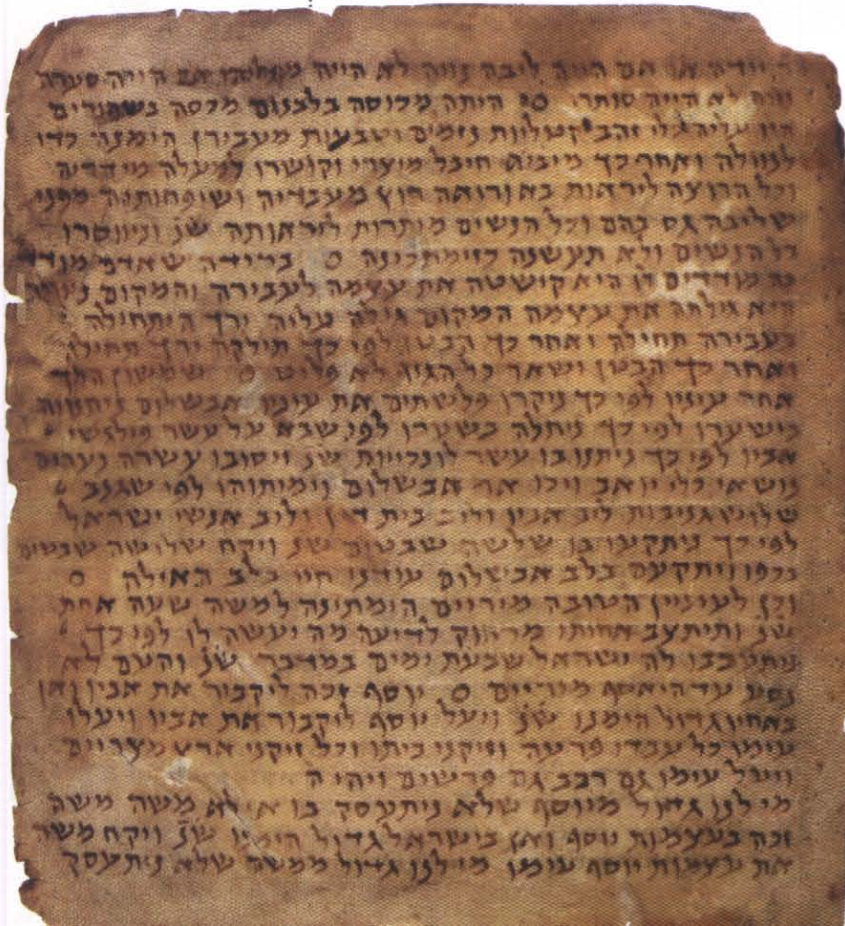 אם היה ליבה נווה לא היה
לא הייה סותרו ס היתה מכוסה בלבנים מכסה בשחורים
היו עליה כלי זהב קטליות נזמים וטבעות מעבירן הימנה כדי
לנוולה ואחר כך מיביא חיבל מיצרי וקושרו למעלה מידדיה
וכל הרוצה ליראות בא ורואה חוץ מעבדיה ושיפחותיה מפני
שליבה גס בהם וכל הנשים מותרות לראותה שנ וניווסרו
כל הנשים ולא תעשנה כזימתכינה ס במידה שאדם מודד
בה מודדים לו היא קישטה את עצמה לעבירה והמקום
היא גילתה את עצמה המקום גילה עליה ירך היתחילה
בעבירה תחילה ואחר כך הבטן לפי כך תילקה ירך תחילה
ואחר כך הבטן ושאר כל הגוף לא פליט ס שמשון הלך
אחר עיניו לפי כך ניקרו פלשתים את עיניו אבשלום ניתנווה
בישערו לפי כך ניתלה בשערו לפי שבא על עשר פילגשי
אביו לפי כך ניתנו בו עשר לונכייות שנ ויסובו עשרה נערים
נושאי כלי יואב ויכו את אבשלום וימיתוהו לפי שגנב
שלוש גניבות ליב אביו וליב בית דין וליב אנשי ישראל
לפי כך ניתקעו בו שלשה שבטים שנ ויקח שלושה שבטים
בכפו ויתקעם בלב אבשלום עודנו חיי בלב האילה ס
וכן לעיניין הטובה מיריים הימתינה למשה שעה אחת
שנ ותיתצב אחותו מרחוק לדיעה מה יעשה לו לפי כך
ניתעכבו לה ישראל שבעת ימים במדבר שנ והעם לא
נסע עד היאסף מיריים ס יוסף זכה ליקבור את אביו ואן
באחיו גדול הימנו שנ ויעל יוסף ליקבור את אביו ויעלו
עימו כל עבדי פרעה וזיקני ביתו וכל זיקני ארץ מצריים
ויעל עימו גם רכב גם פרשים ויהי ה
מי לנו גדול מיוסף שלא ניתעסק בו אילא משה משה
זכה בעצמות יוסף ואן בישראל גדול הימנו שנ ויקח משה
את עצמות יוסף עימו מי לנו גדול ממשה שלא ניתעסק